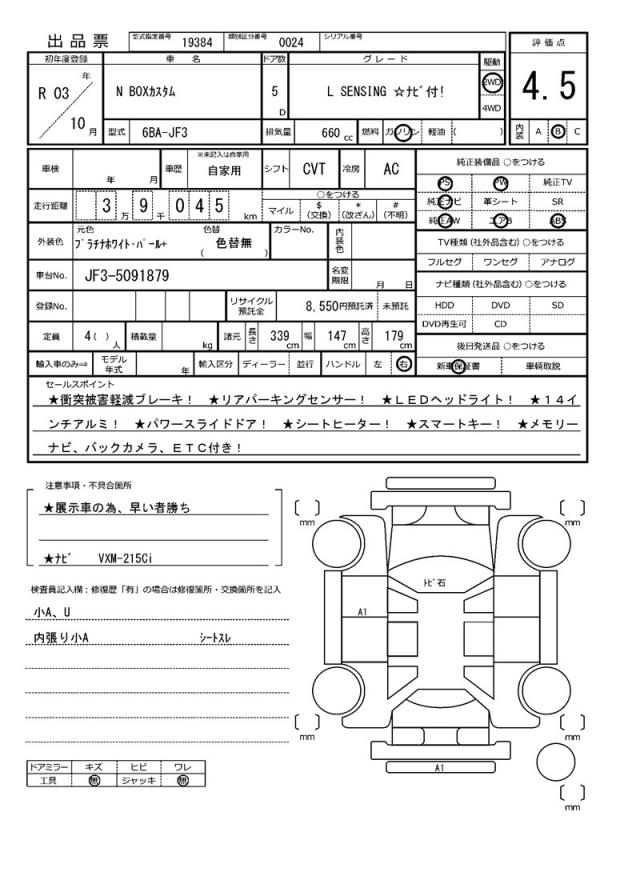 出品票 型式指定番号 19384 類別区分番号 0024 シリアル番号
評価点
4.5
内装 A B C
初年度登録 車名 ドア数 グレード 駆動
R 03 年 10 月 N BOXカスタム 5 D L SENSING ☆ナビ付! 2WD 4WD
型式 6BA-JF3 排気量 660 cc 燃料 ガソリン 軽油 ( )
車検 年 月 車歴 ※未記入は自家用 自家用 シフト CVT 冷房 AC
走行距離 3 万 9 千 0 4 5 km ○をつける
マイル $ (交換) * (改ざん) # (不明)
外装色 元色 プラチナホワイト・パール+ 色替 ( 色替無 ) カラーNo. 内装色
車台No. JF3-5091879 名変期限 月 日
登録No. リサイクル預託金 8,550円預託済 未預託
定員 4( ) 人 積載量 kg 諸元 長さ 339 cm 幅 147 cm 高さ 179 cm
輸入車のみ⇒ モデル年式 年 輸入区分 ディーラー 並行 ハンドル 左 右
純正装備品 ○をつける
PS PW 純正TV
純正ナビ 革シート SR
純正AW エアB ABS
TV種類(社外品含む)○をつける
フルセグ ワンセグ アナログ
ナビ種類(社外品含む)○をつける
HDD DVD SD
DVD再生可 CD
後日発送品 ○をつける
新車保証書 車輌取説
セールスポイント
★衝突被害軽減ブレーキ! ★リアパーキングセンサー! ★LEDヘッドライト! ★14イ
ンチアルミ! ★パワースライドドア! ★シートヒーター! ★スマートキー! ★メモリー
ナビ、バックカメラ、ETC付き!
注意事項・不具合箇所
★展示車の為、早い者勝ち
★ナビ VXM-215Ci
検査員記入欄:修復歴「有」の場合は修復箇所・交換箇所を記入
小A、U
内張り小A シートスレ
ドアミラー キズ ヒビ ワレ
工具 無 ジャッキ 無
mm
mm
トビ石
A1
mm
mm
A1
mm